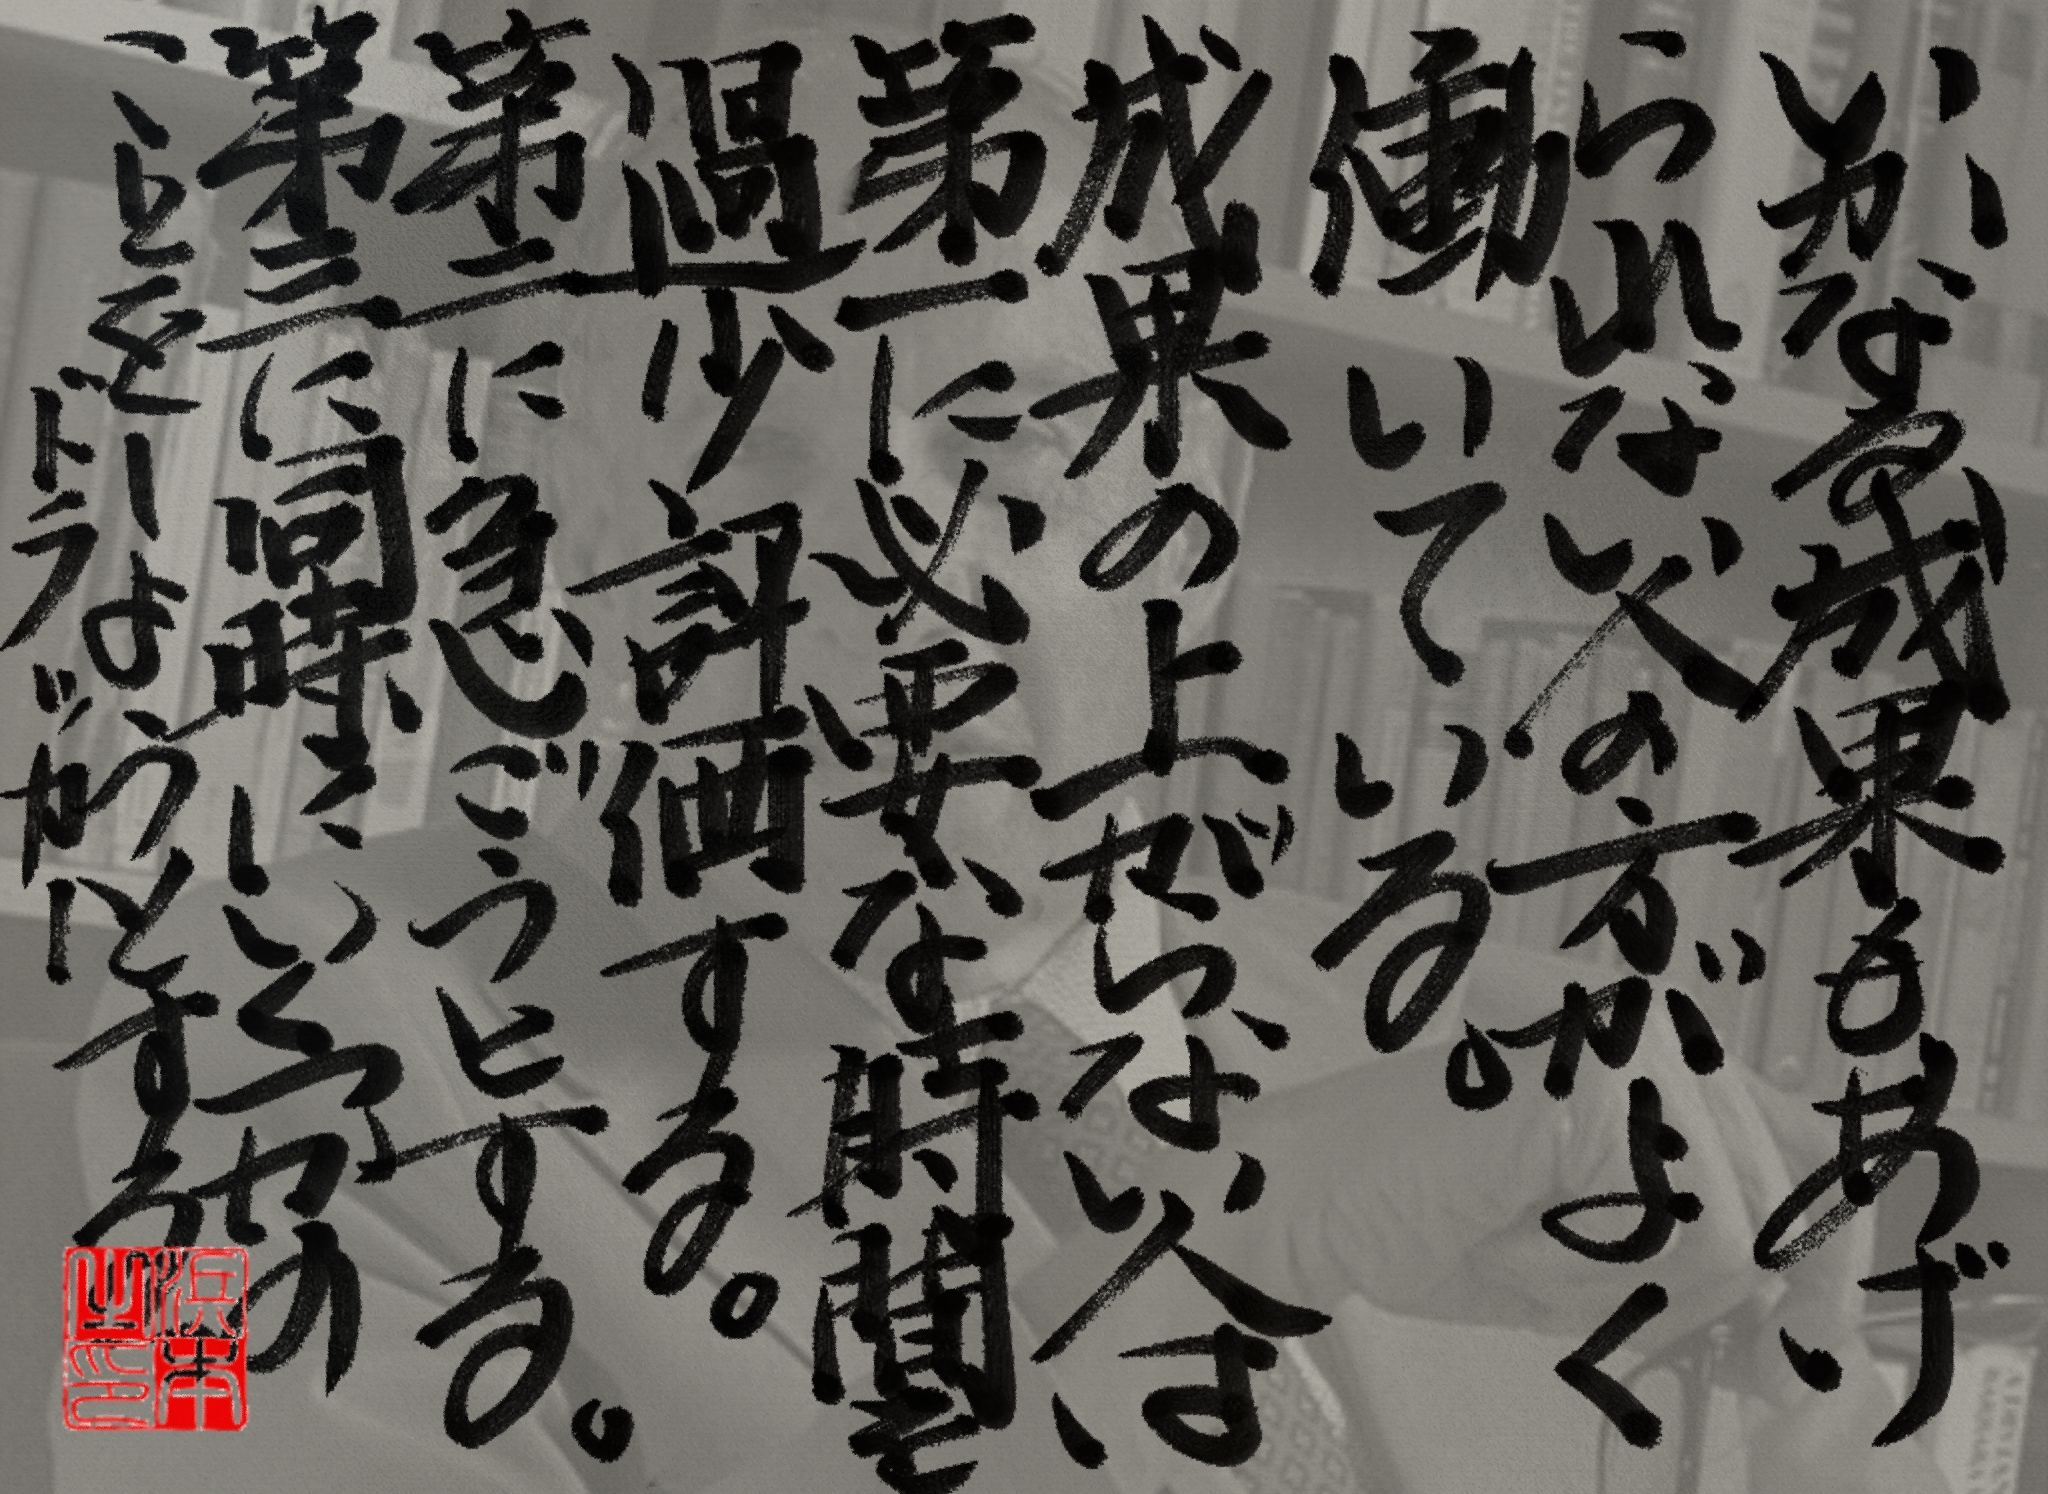 いかなる成果もあげ
られない人の方がよく
働いている。
成果の上がらない人は
第一に必要な時間を
過少評価する。
第二に急ごうとする。
第三に同時にいくつもの
ことをしようとする
ドラッカー
浜本
之印